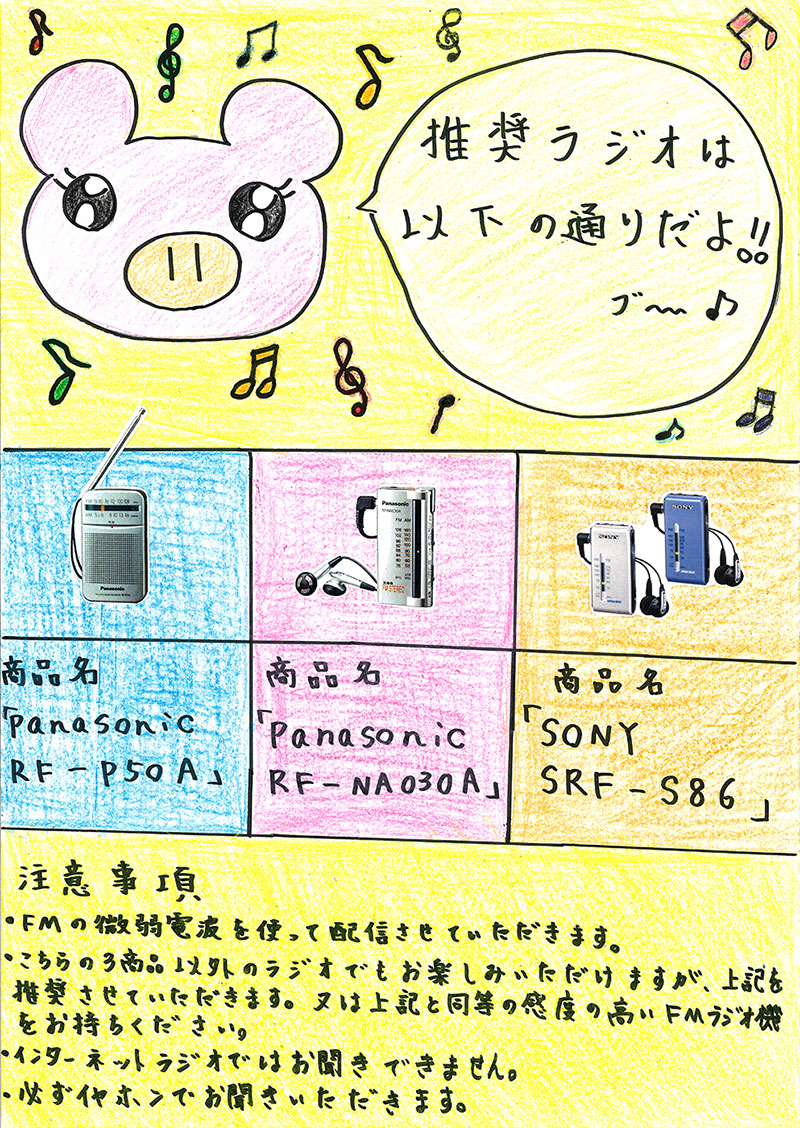 推奨ラジオは
以下の通りだよ!!
ブ〜♪
Panasonic
Panasonic
FM AM
FM STEREO
SONY
SONY
商品名
「Panasonic
RF-P50A」
商品名
「Panasonic
RF-NA030A」
商品名
「SONY
SRF-S86」
注意事項
・FMの微弱電波を使って配信させていただきます。
・こちらの3商品以外のラジオでもお楽しみいただけますが、上記を
推奨させていただきます。又は上記と同等の感度の高いFMラジオ機
をお持ちください。
・インターネットラジオではお聞きできません。
・必ずイヤホンでお聞きいただきます。